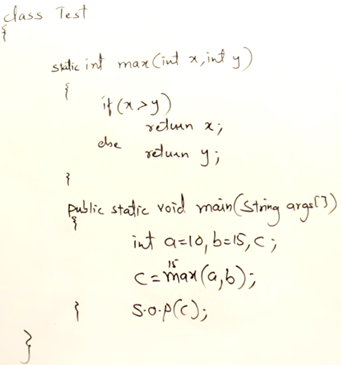 class Test
{
static int max(int x, int y)
{
if(x>y)
return x;
else
return y;
}
public static void main(String args[])
{
int a=10, b=15, c;
15
c=max(a,b);
} s.o.p(c);
}